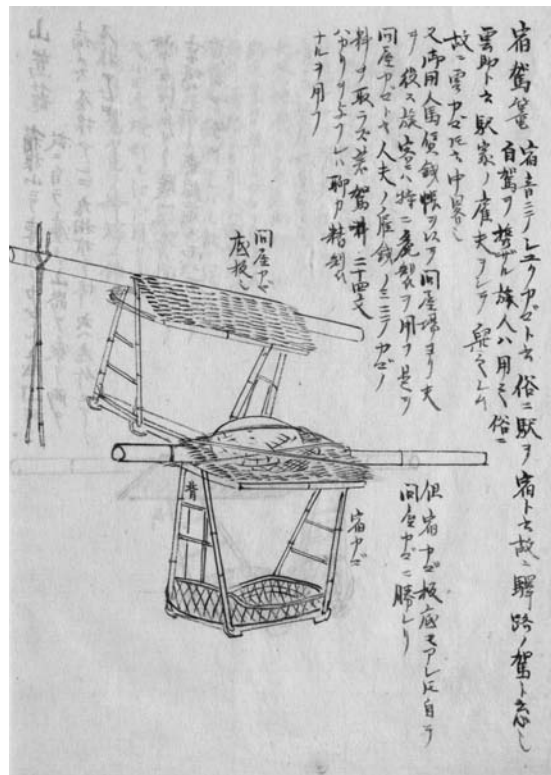 宿駕籠 宿音ニテシユクカゴト云 俗ニ駅ヲ宿ト云故ニ驛路ノ駕ト云意也
自駕ヲ携ザル旅人ハ用之 俗ニ
雲助ト云駅家ノ雇夫ヲシテ舁之シム
故ニ雲カゴトモ云 中畧也
又御用人馬賃銭帳ヲ以テ問屋場ヨリ夫
ヲ役ス旅客ニハ特ニ麁製ヲ用フ 是ヲ
問屋カゴト云 人夫ノ雇銭ノミニテカゴノ
料ヲ取ラズ 若駕料二十四文
バカリヲ与フレバ聊カ精製
ナルヲ用フ
問屋カゴ
底板也
宿カゴ
但宿カゴ板底モアレドモ自ラ
問屋カゴニ勝レリ